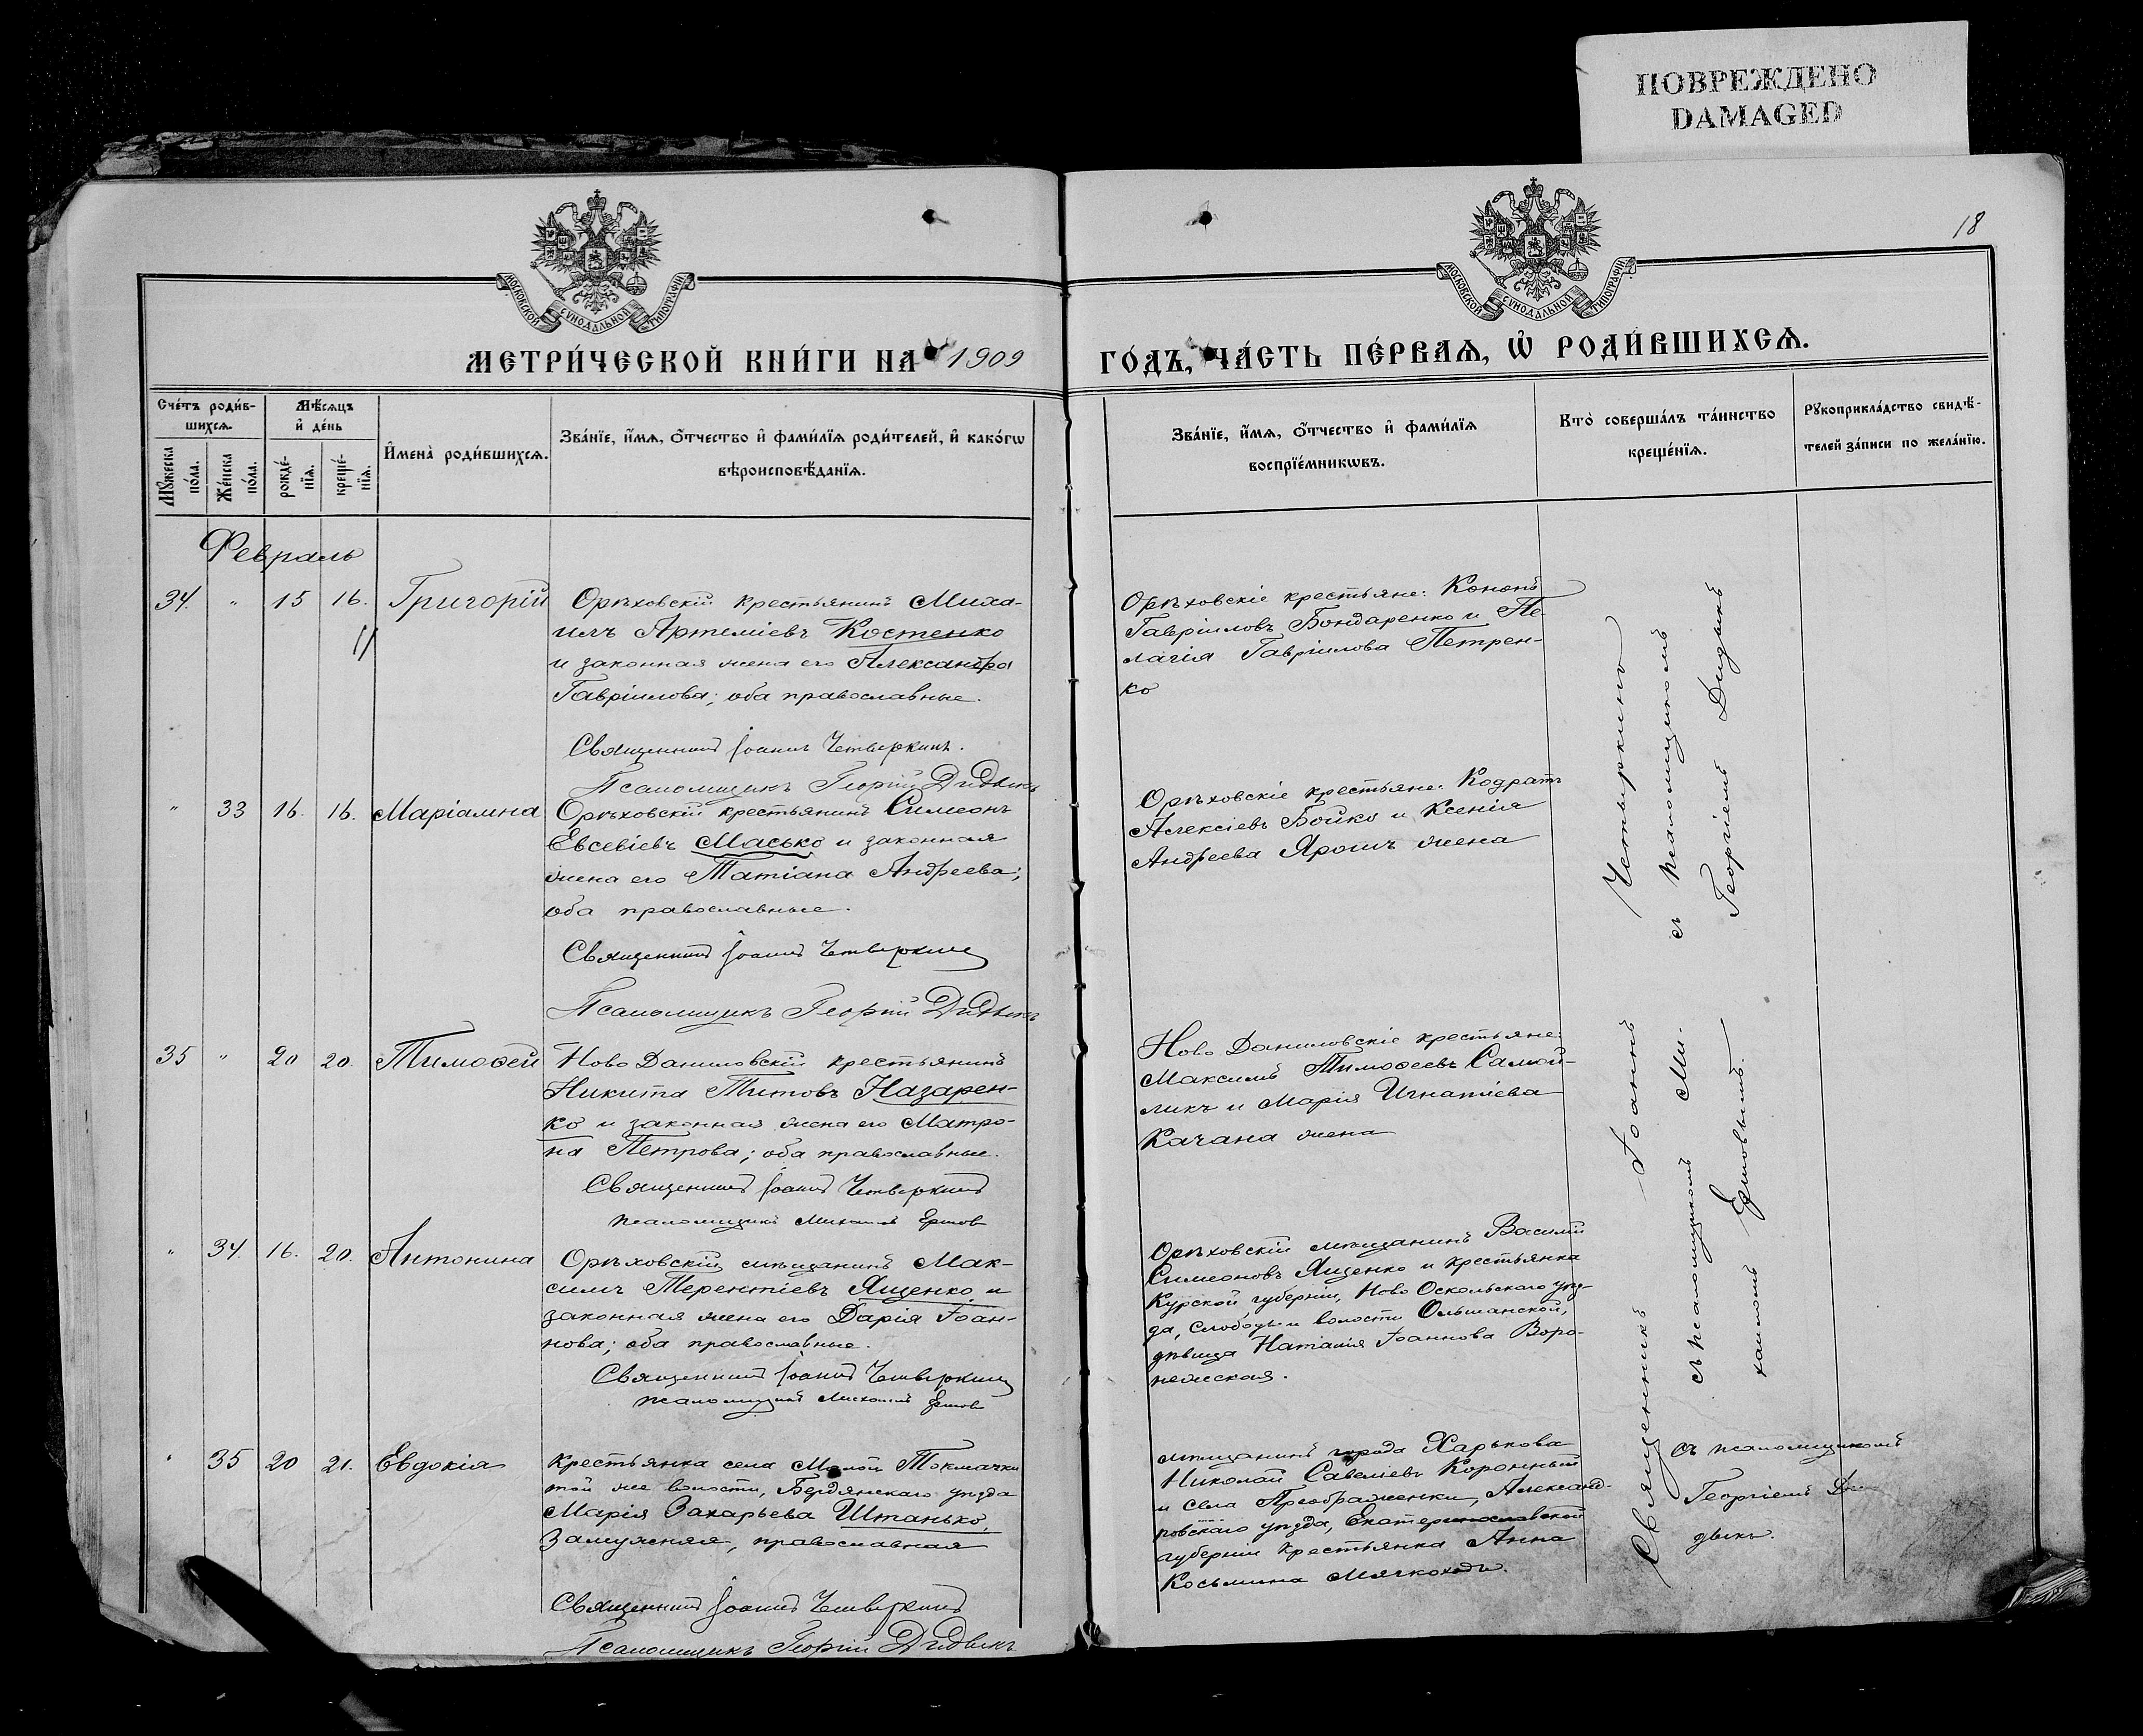 ПОВРЕЖДЕНО
DAMAGED
18
МОСКОВСКОЙ СѴНОДАЛЬНОЙ ТИПОГРАФІИ
МОСКОВСКОЙ СѴНОДАЛЬНОЙ ТИПОГРАФІИ
МЕТРИ́ЧЕСКОЙ КНИ́ГИ НА 1909 ГО́ДЪ, ЧА́СТЬ ПЕ́РВАѦ, Ѡ҆ РОДИ́ВШИХСѦ.
Сче́тъ роди́в-
шихсѧ.
Мѣ́сѧцъ
и҆ де́нь
Мꙋ́жеска
по́ла.
Же́нска
по́ла.
рожде́-
нїѧ.
креще́-
нїѧ.
И҆мена̀ роди́вшихсѧ.
Зва́нїе, и҆́мѧ, ѻ҆́тчество и҆ фами́лїѧ роди́телей, и҆ како́гѡ
вѣроисповѣ́данїѧ.
Зва́нїе, и҆́мѧ, ѻ҆́тчество и҆ фами́лїѧ
воспрїе́мникѡвъ.
Кто̀ соверша́лъ та́инство
креще́нїѧ.
Рꙋкоприкла́дство свидѣ́-
телей за́писи по жела́нїю.
Февраль
34. " 15 16. Григорій
Орѣховскій крестьянинъ Миха-
илъ Артеміевъ Костенко
и законная жена его Александра
Гавріилова; оба православные.
Священникъ Іоаннъ Четверкинъ.
Псаломщикъ Георгій Дидыкъ
Орѣховскіе крестьяне: Кононъ
Гавріиловъ Бондаренко и Пе-
лагія Гавріилова Петрен-
ко
" 33 16. 16. Маріамна
Орѣховскій крестьянинъ Симеонъ
Евсевіевъ Масько и законная
жена его Татіана Андреева;
оба православные.
Священникъ Іоаннъ Четверкинъ
Псаломщикъ Георгій Дидыкъ
Орѣховскіе крестьяне: Кодратъ
Алексіевъ Бойко и Ксенія
Андреева Ярошъ жена
35 " 20 20. Тимоѳей
Ново Даниловскій крестьянинъ
Никита Титовъ Назарен-
ко и законная жена его Матро-
на Петрова; оба православные.
Священникъ Іоаннъ Четверкинъ
псаломщикъ Михаилъ Ершовъ
Ново Даниловскіе крестьяне:
Максимъ Тимоѳеевъ Самой-
ликъ и Марія Игнатіева
Качана жена
" 34. 16. 20. Антонина
Орѣховскій мѣщанинъ Мак-
симъ Терентіевъ Ященко и
законная жена его Дарія Іоан-
нова; оба православные.
Священникъ Іоаннъ Четверкинъ
псаломщикъ Михаилъ Ершовъ
Орѣховскій мѣщанинъ Василій
Симеоновъ Ященко и крестьянка
Курской губерніи, Ново Оскольскаго уѣз-
да, Слободы и волости Ольшанской,
дѣвица Наталія Іоаннова Воро-
нежская.
" 35 20 21. Евдокія
Крестьянка села Малой Токмачки
той же волости, Бердянскаго уѣзда
Марія Захарьева Штанько,
замужняя, православная
Священникъ Іоаннъ Четверкинъ
Псаломщикъ Георгій Дидыкъ
мѣщанинъ города Харькова
Николай Савеліевъ Коронный
и села Преображенки, Александ-
ровскаго уѣзда, Екатеринославской
губерніи крестьянка Анна
Косьмина Мягкоходъ.
Священникъ Іоаннъ Четыркинъ
съ псаломщикомъ
Георгіемъ Дидыкъ
съ псаломщикомъ Ми-
хаиломъ Ершовымъ.
съ псаломщикомъ
Георгіемъ Ди
дыкъ.